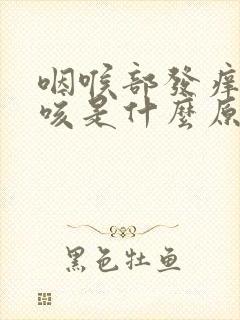 咽喉部發痒
咳是什麼原
黑色牡鱼